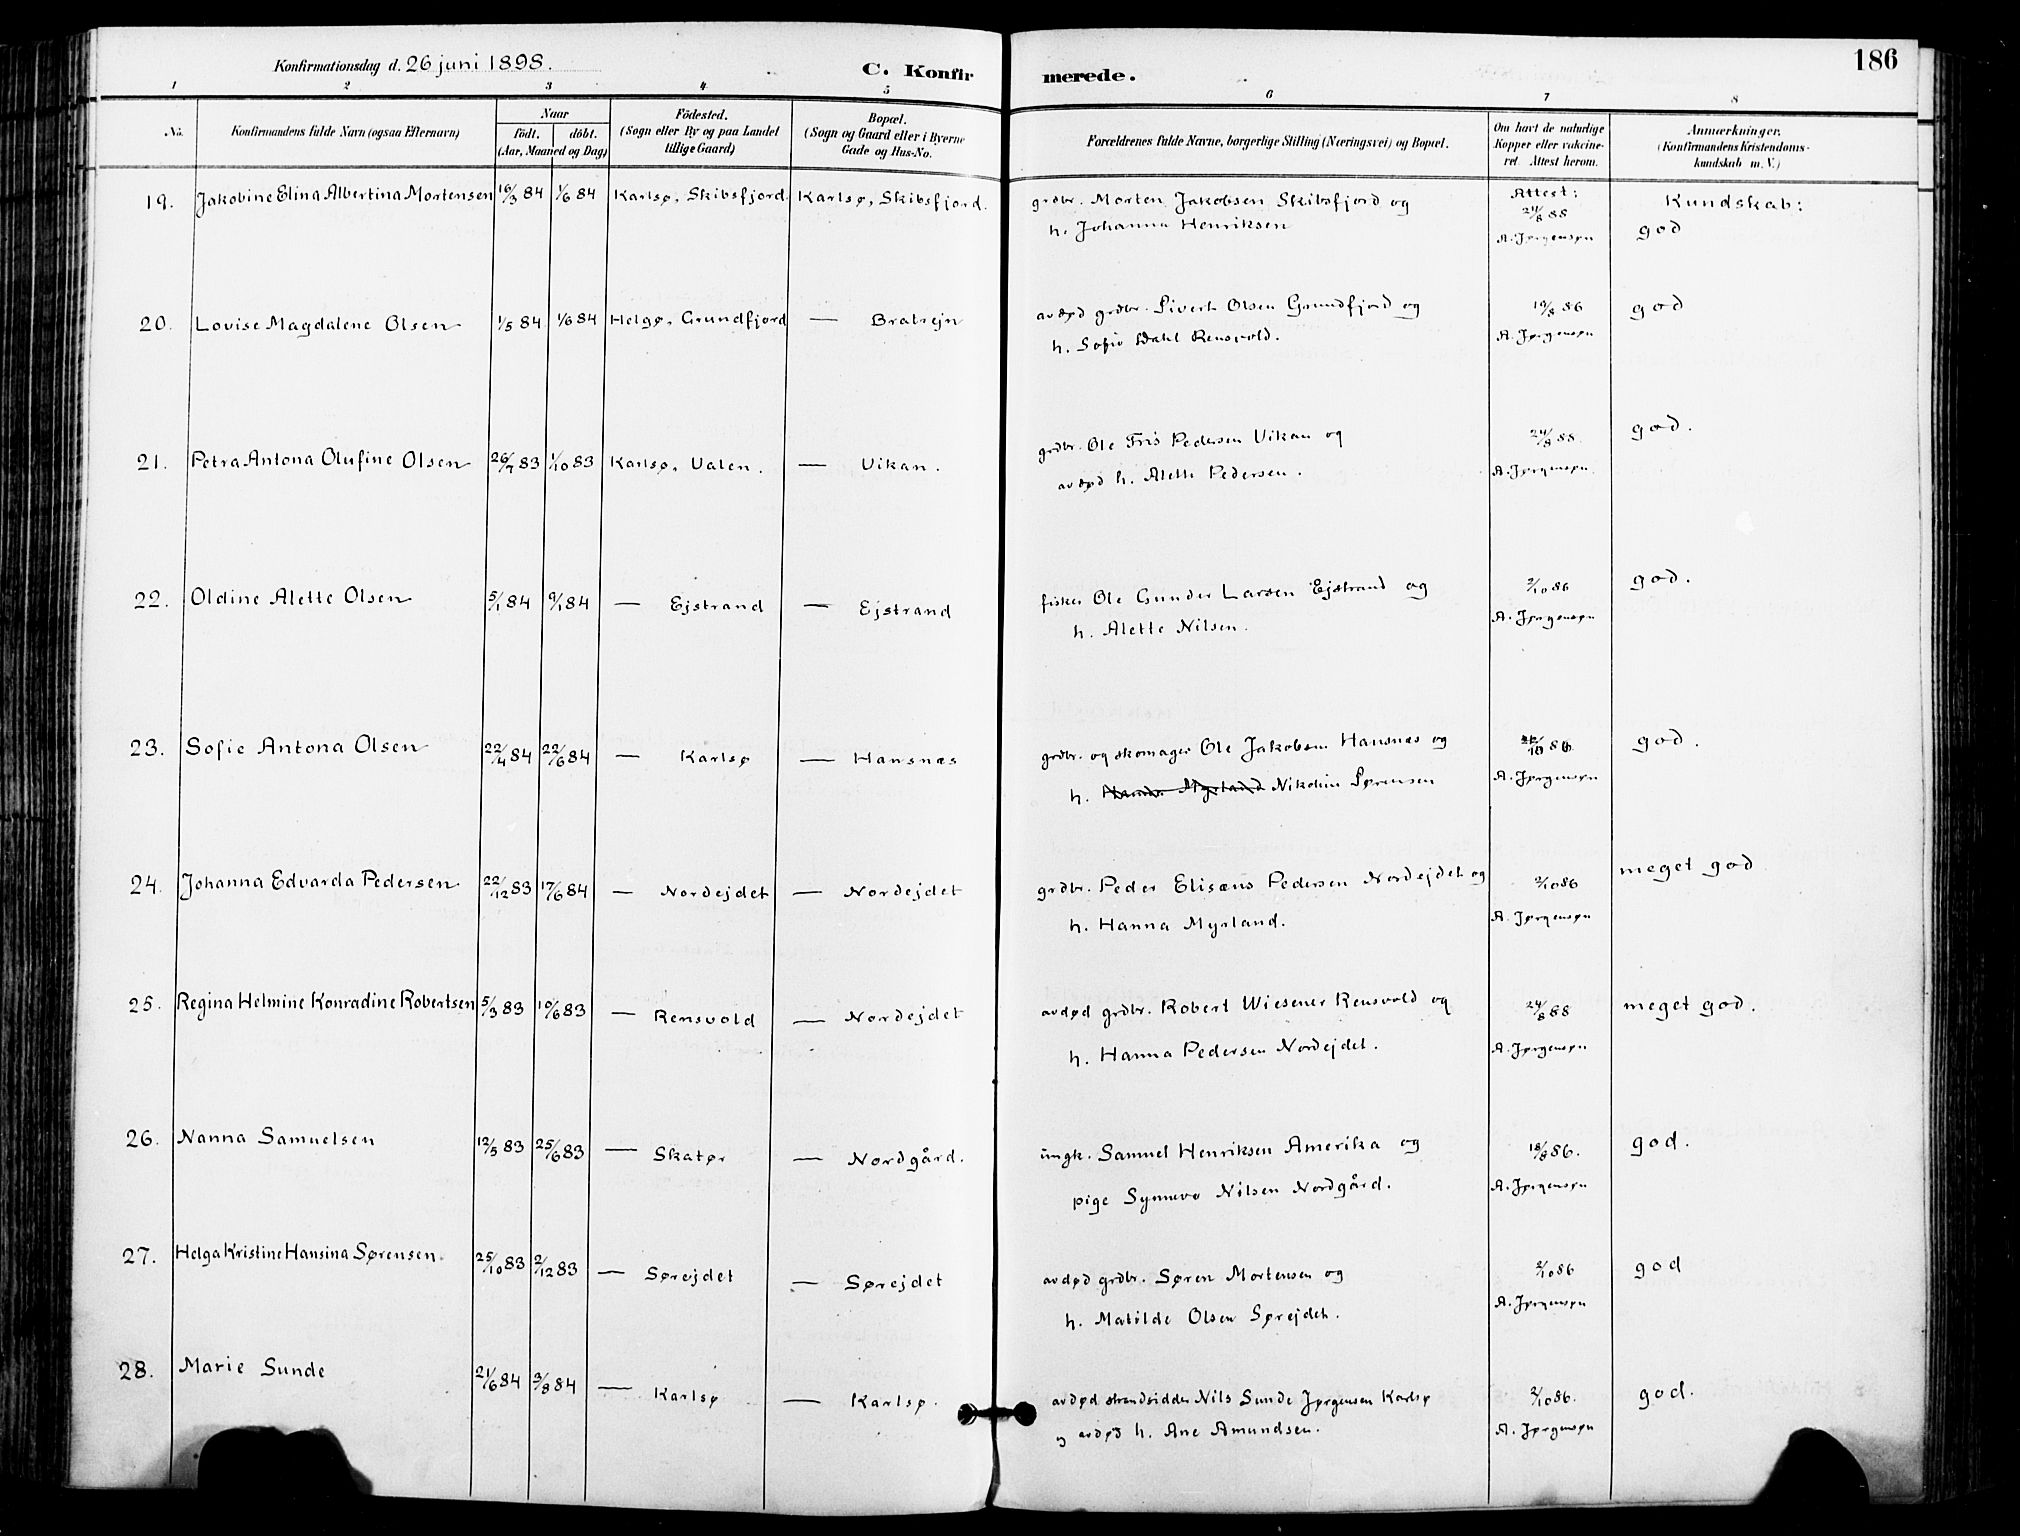 Konfirmationsdag d. 26 juni 1898.
C. Konfir
merede.
186
1 2 3 4 5 6 7 8
No. Konfirmandens fulde Navn (ogsaa Efternavn) Naar födt. döbt. (Aar, Maaned og Dag) Födested. (Sogn eller By og paa Landet tillige Gaard) Bopæl. (Sogn og Gaard eller i Byerne Gade og Hus-No. Forældrenes fulde Navne, borgerlige Stilling (Næringsvei) og Bopæl. Om havt de naturlige Kopper eller vakcineret. Attest herom. Anmærkninger. (Konfirmandens Kristendomskundskab m. V.)
19. Jakobine Elina Albertina Mortensen 16/3 84 1/6 84 Karlsø, Skibsfjord. Karlsø, Skibsfjord. grdbr. Morten Jakobsen Skibsfjord og Attest: 24/8 88 Kundskab:
h. Johanna Henriksen A. Jørgensøn god
20. Lovise Magdalene Olsen 1/5 84 1/6 84 Helgø, Grundfjord — Bratrejn avdød grdbr. Sivert Olsen Grundfjord og 19/8 86 god
h. Sofie Dahl Rensvold. A. Jørgensøn
21. Petra Antona Olufine Olsen 26/7 83 1/10 83 Karlsø, Valen. — Vikan. grdbr. Ole Fris Pedersen Vikan og 24/8 88. god.
avdød h. Alette Pedersen. A. Jørgensøn
22. Oldine Alette Olsen 5/1 84 9/1 84 — Ejstrand — Ejstrand fisker Ole Gunder Larsen Ejstrand og 2/10 86 god.
h. Alette Nilsen. A. Jørgensøn
23. Sofie Antona Olsen 22/4 84 22/6 84 — Karlsø — Hansnæs grdbr. og skomager Ole Jakobsen Hansnæs og 86 god.
h. Hanna Myrland Nikoline Sørensen A. Jørgensøn
24. Johanna Edvarda Pedersen 22/12 83 17/6 84 — Nordejdet — Nordejdet grdbr. Peder Elisæus Pedersen Nordejdet og 2/10 86 meget god
h. Hanna Myrland. A. Jørgensøn
25. Regina Helmine Konradine Robertsen 5/3 83 10/6 83 — Rensvold — Nordejdet avdød grdbr. Robert Wiesener Rensvold og 24/8 88 meget god.
h. Hanna Pedersen Nordejdet. A. Jørgensøn
26. Nanna Samuelsen 12/5 83 25/6 83 — Skatør — Nordgård. ungk. Samuel Henriksen Amerika og 18/8 86. god.
pige Synneva Nilsen Nordgård. A. Jørgensøn
27. Helga Kristine Hansina Sørensen. 25/10 83 2/12 83 — Sørejdet — Sørejdet avdød grdbr. Søren Mortensen og 2/10 86 god
h. Matilde Olsen Sørejdet. A. Jørgensøn
28. Marie Sunde 21/6 84 3/8 84 — Karlsø — Karlsø. avdød strandsidder Nils Sunde Jørgensen Karlsø 2/10 86. god.
og avdød h. Ane Amundsen. A. Jørgensøn